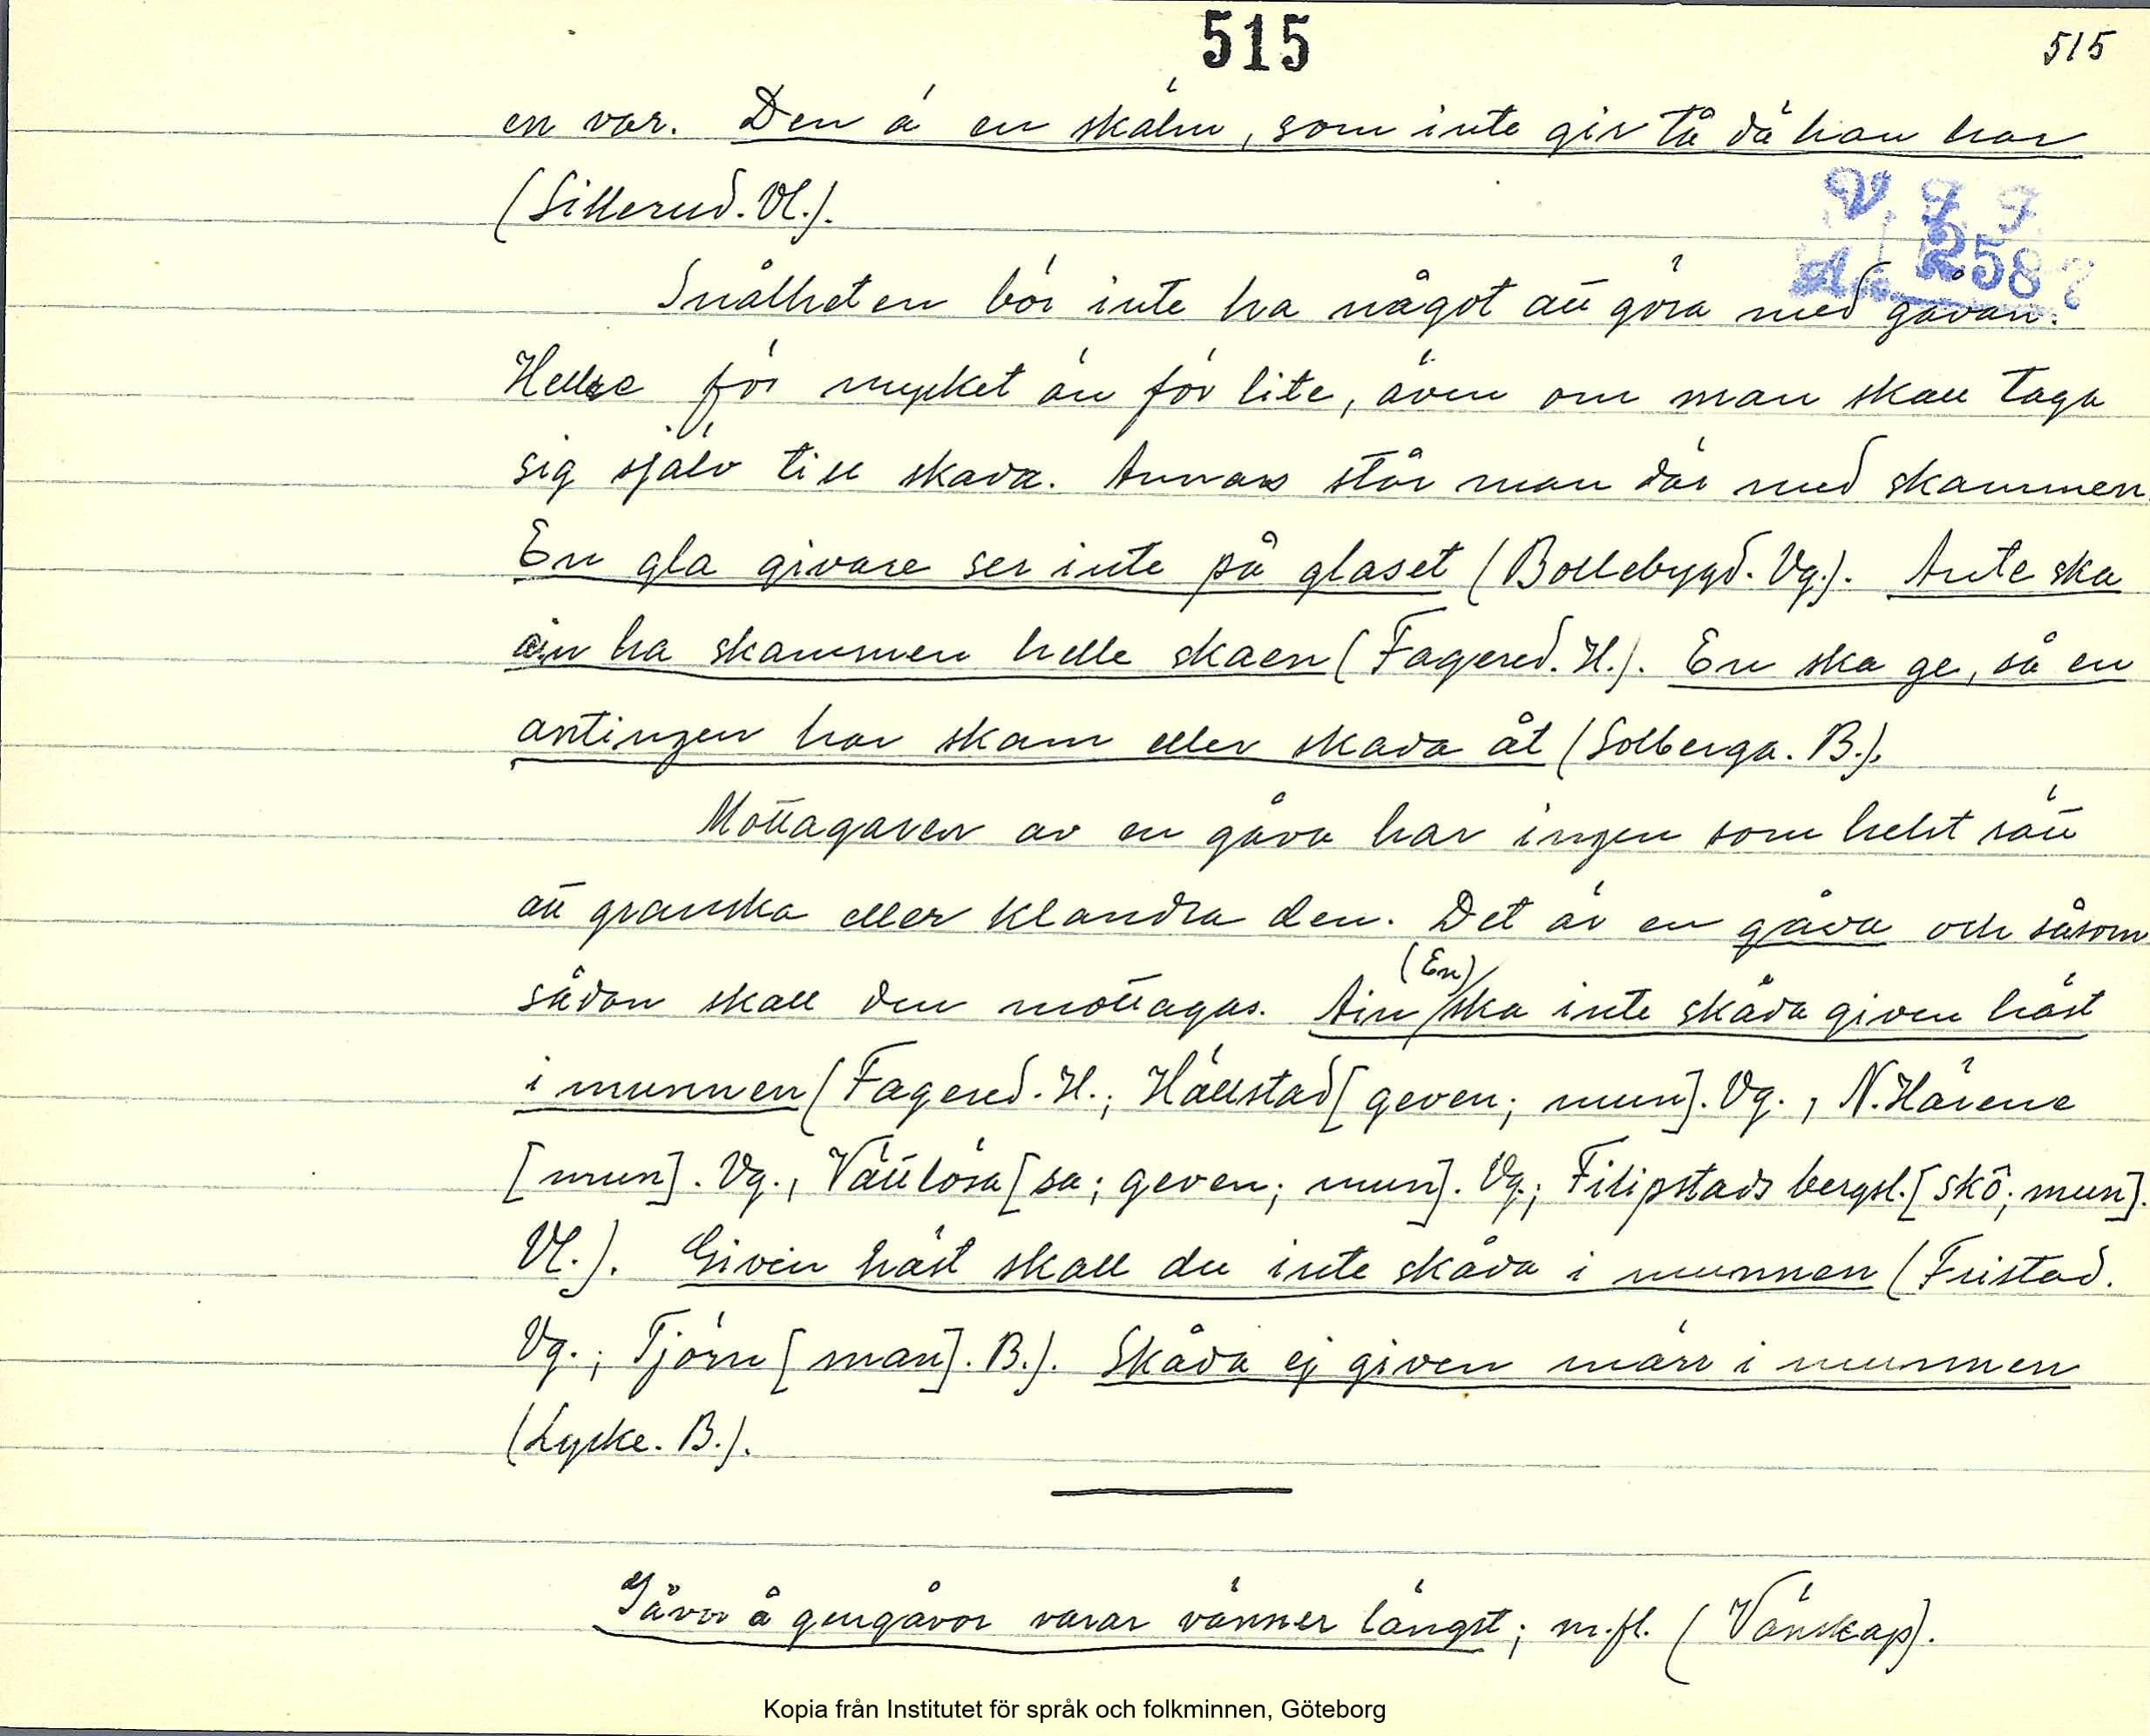 515
515
en var. Den ä en skälm, som inte gir tå dä han har
(Sillerud. Vl.).
V. F. F.
2587
Snålheten bör inte ha något att göra med gåvan.
Hellre för mycket än för lite, även om man skall taga
sig själv till skada. Annars står man där med skammen.
En gla givare ser inte på glaset (Bollebygd. Vg.). Ante ska
äin ha skammen helle skaen (Fagered. H.). En ska ge, så en
antingen har skam eller skada åt (Solberga. B.).
Mottagaren av en gåva har ingen som helst rätt
att granska eller klandra den. Det är en gåva och såsom
(En)
sådan skall den mottagas. Ain/ska inte skåda given häst
i munnen (Fagered. H.; Hällstad [geven; mun]. Vg., N. Härene
[mun]. Vg., Vättlösa [sa; geven; mun]. Vg.; Filipstads bergsl. [skô; mun].
Vl.). Given häst skall du inte skåda i munnen (Fristad.
Vg.; Tjörn [man]. B.). Skåda ej given märr i munnen
(Lycke. B.).
Gåvor å gengåvor varar vänner längst; m.fl. (Vänskap).
Kopia från Institutet för språk och folkminnen, Göteborg